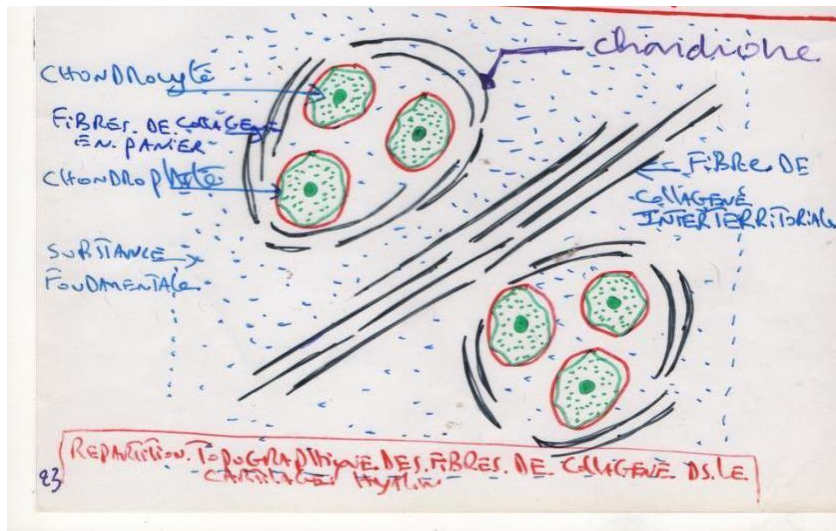 chondrione
CHONDROCYTE
FIBRES. DE. COLLAGENE
EN. PANIER
CHONDROPLASTE
SUBSTANCE
FONDAMENTALE
FIBRE DE
COLLAGENE
INTERTERRITORIALE
REPARTITION. TOPOGRAPHIQUE. DES. FIBRES. DE. COLLAGENE DS. LE.
CARTILAGE HYALIN
23